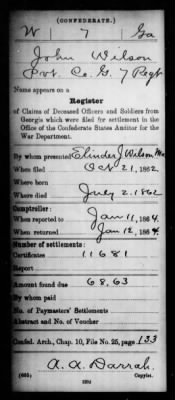 (CONFEDERATE.)
W 7 Ga
John Wilson
Pvt. Co. G. 7 Regt
Name appears on a
Register
of Claims of Deceased Officers and Soldiers from
Georgia which were filed for settlement in the
Office of the Confederate States Auditor for the
War Department.
By whom presented Elinder J. Wilson
When filed Oct 21, 1862.
Where born
Where died July 2. 1862
Comptroller:
When reported to Jan 11, 1864.
When returned Jan 12, 1864
Number of settlements:
Certificates 11681
Report
Amount found due 68,63
By whom paid
No. of Paymasters' Settlements
Abstract and No. of Voucher
Confed. Arch., Chap. 10, File No. 25, page 133
A. A. Darrah.
Copyist.